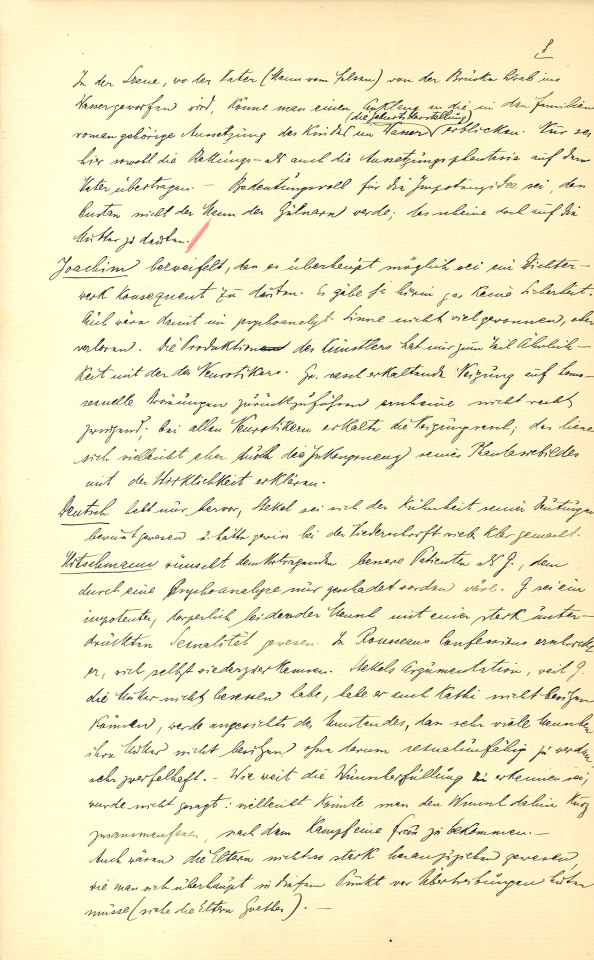 8
In der Szene, wo der Vater (Mann vom Felsen) von der Brücke herab ins
Wasser geworfen wird, könne man einen Anklang an die in den Familien-
(die Geburtsdarstellung)
roman gehörige Aussetzung des Kindes im Wasser erblicken. Nur sei
hier sowohl die Rettungs- als auch die Aussetzungsphantasie auf den
Vater übertragen – Bedeutungsvoll für die Impotenzidee sei, dass
nicht der Mann der verde; das scheine doch auf die
Mutter zu deuten.
Joachim bezweifelt, dass es überhaupt möglich sei ein Dichter-
werk konsequent zu deuten. Es gäbe ja hierin gar keine Sicherheit.
Auch wäre damit im psychoanalyt. Sinne nicht viel gewonnen, eher
verloren. Die Produktion des Künstlers hat nur zum Teil Ähnlich-
keit mit der des Neurotikers. Gr. rasch erkaltende Neigung auf homo-
sexuelle Strömungen zurückzuführen erscheine nicht recht
zwingend. Bei allen Neurotikern erkalte die Neigung rasch; das liesse
sich vielleicht eher durch die seines Phantasiebildes
mit der Wirklichkeit erklären.
Deutsch hebt nur hervor, Stekel sei sich der Kühnheit seiner Deutungen
bewusst gewesen u. hätte gewiss bei der Niederschrift vieles klar gemacht.
Hitschmann wünscht dem Vortragenden bessere Patienten als G., dem
durch eine Psychoanalyse nur geschadet worden wäre. G. sei ein
impotenter, körperlich leidender Mensch mit einer stark unter-
drückten Sexualität gewesen. In Rousseaus Confessions
er, sich selbst wiederzuerkennen. Stekels Argumentation, weil G.
die Mutter nicht besessen habe, habe er auch Kathi nicht besitzen
können, werde angesichts des Umstandes, dass sehr viele Menschen
ihre Mutter nicht besitzen ohne darum sexualunfähig zu werden
sehr zweifelhaft. – Wie weit die Wunscherfüllung zu erkennen sei,
wurde nicht gesagt: vielleicht könnte man den Wunsch dahin kurz
zusammenfassen, nach dem Kampf eine Frau zu bekommen. –
Auch wären die Eltern nicht so stark heranzuziehen gewesen,
wie man sich überhaupt in diesem Punkt vor Übertreibungen hüten
müsse (siehe die Eltern Goethes). –